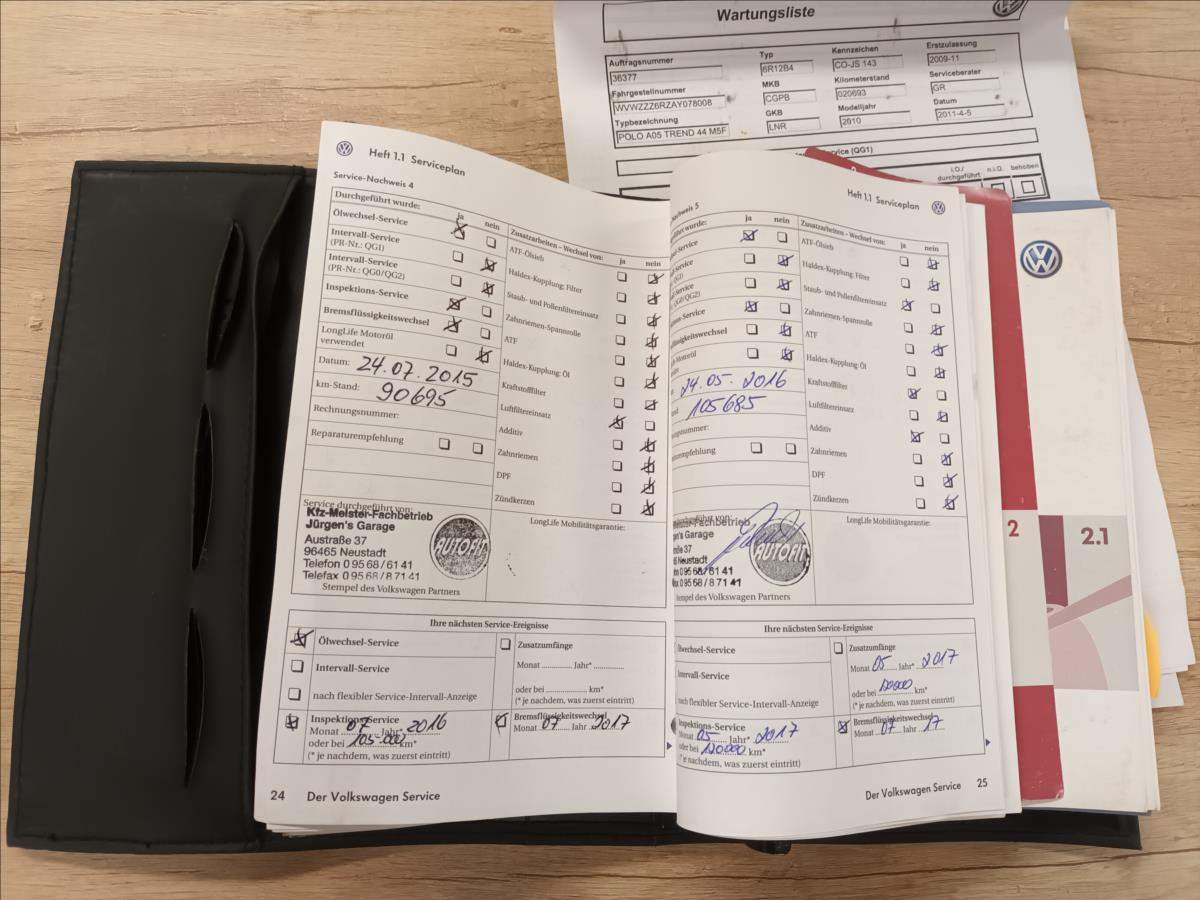 Wartungsliste
Auftragsnummer
36377
Typ
6R12B4
Kennzeichen
CO-JS 143
Erstzulassung
2009-11
Fahrgestellnummer
WVWZZZ6RZAY078008
MKB
CGPB
Kilometerstand
020693
Serviceberater
GR
Typbezeichnung
POLO A05 TREND 44 M5F
GKB
LNR
Modelljahr
2010
Datum
2011-4-5
(QG1)
i.O./ durchgeführt
n.i.O.
behoben
Heft 1.1 Serviceplan
Service-Nachweis 4
Durchgeführt wurde:
ja nein
Ölwechsel-Service
Intervall-Service
(PR-Nr.: QG1)
Intervall-Service
(PR-Nr.: QG0/QG2)
Inspektions-Service
Bremsflüssigkeitswechsel
LongLife Motoröl
verwendet
Datum: 24.07.2015
km-Stand: 90695
Rechnungsnummer:
Reparaturempfehlung
Zusatzarbeiten – Wechsel von: ja nein
ATF-Ölsieb
Haldex-Kupplung: Filter
Staub- und Pollenfiltereinsatz
Zahnriemen-Spannrolle
ATF
Haldex-Kupplung: Öl
Kraftstofffilter
Luftfiltereinsatz
Additiv
Zahnriemen
DPF
Zündkerzen
Service durchgeführt von:
Kfz-Meister-Fachbetrieb
Jürgen's Garage
Austraße 37
96465 Neustadt
Telefon 0 95 68 / 61 41
Telefax 0 95 68 / 8 71 41
AUTOFIT
Stempel des Volkswagen Partners
LongLife Mobilitätsgarantie:
Ihre nächsten Service-Ereignisse
Ölwechsel-Service
Intervall-Service
nach flexibler Service-Intervall-Anzeige
Inspektions-Service
Monat 07 Jahr* 2016
oder bei 105 000 km*
(* je nachdem, was zuerst eintritt)
Zusatzumfänge
Monat ............ Jahr* ............
oder bei ............ km*
(* je nachdem, was zuerst eintritt)
Bremsflüssigkeitswechsel
Monat 07 Jahr 2017
24 Der Volkswagen Service
Heft 1.1 Serviceplan
achweis 5
ührt wurde:
ja nein
el-Service
QG1)
QG0/QG2)
ns-Service
lüssigkeitswechsel
Motoröl
24.05.2016
105685
gsnummer:
Zusatzarbeiten – Wechsel von: ja nein
ATF-Ölsieb
Haldex-Kupplung: Filter
Staub- und Pollenfiltereinsatz
Zahnriemen-Spannrolle
ATF
Haldex-Kupplung: Öl
Kraftstofffilter
Luftfiltereinsatz
Additiv
Zahnriemen
DPF
Zündkerzen
eister-Fachbetrieb
gen's Garage
aße 37
Neustadt
0 95 68 / 61 41
0 95 68 / 8 71 41
AUTOFIT
Stempel des Volkswagen Partners
LongLife Mobilitätsgarantie:
Ihre nächsten Service-Ereignisse
Ölwechsel-Service
Intervall-Service
nach flexibler Service-Intervall-Anzeige
Inspektions-Service
Monat 05 Jahr* 2017
oder bei 120000 km*
(* je nachdem, was zuerst eintritt)
Zusatzumfänge
Monat 05 Jahr* 2017
oder bei 120000 km*
(* je nachdem, was zuerst eintritt)
Bremsflüssigkeitswechsel
Monat 07 Jahr 17
Der Volkswagen Service 25
2
2.1